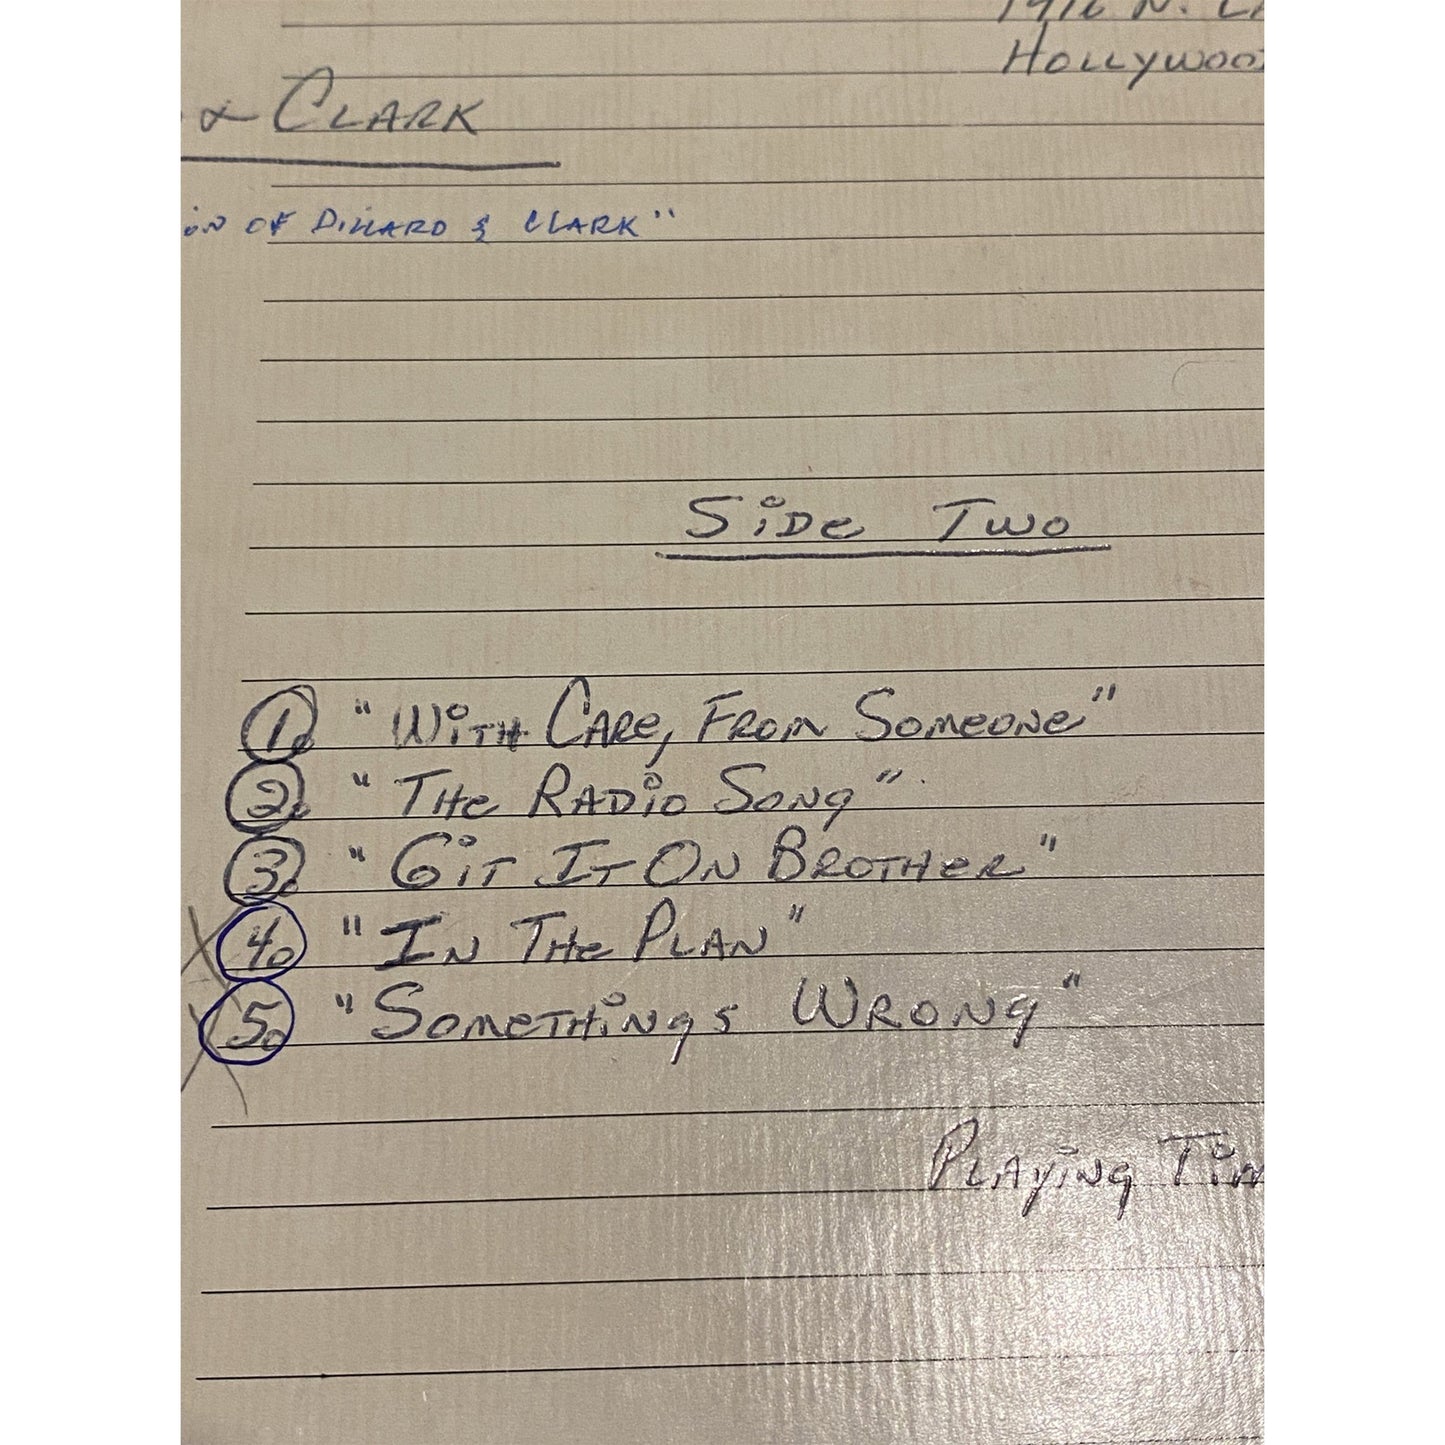 Hollywoo
& CLARK
ON OF DILLARD & CLARK"
SiDe Two
1. "WiTH CARe, FROM SOMeONe"
2. "THe RADiO SONg"
3. "GiT IT ON BROTHeR"
4. "IN THe PLAN"
5. "SOMeTHiNgS WRONg"
PLAYiNg